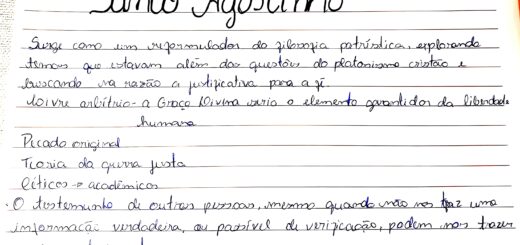 Santo Agostinho
Surge como um reformulador da filosofia patrística, explorando
temas que estavam além das questões do platonismo cristão e
buscando na razão a justificativa para a fé.
Livre arbítrio - a Graça Divina seria o elemento garantidor da liberdade
humana
Pecado original
Teoria da guerra justa
Céticos → acadêmicos
· O testemunho de outras pessoas, mesmo quando não nos traz uma
informação verdadeira, ou passível de verificação, podem nos trazer